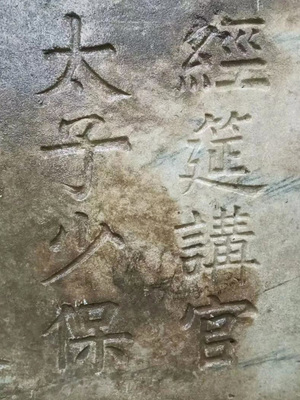 經筵講官
太子少保